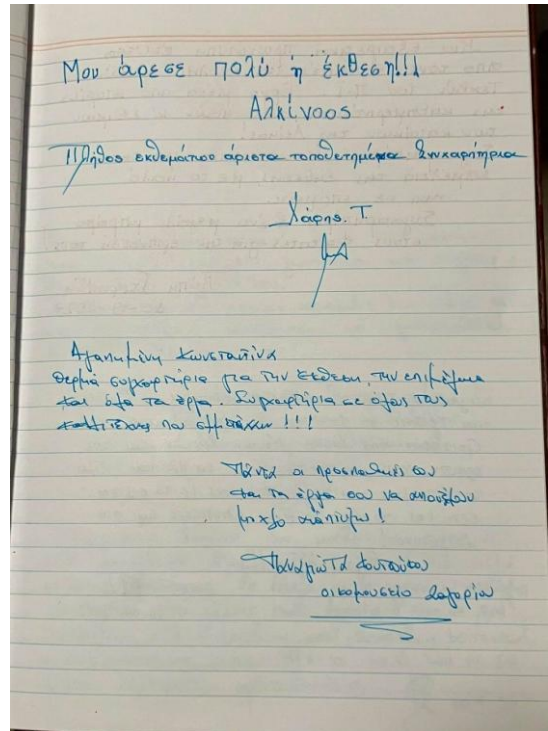 Μου άρεσε πολύ ή έκθεση!!!
Αλκίνοος
Πλήθος εκθεμάτων άριστα τοποθετημένα Συγχαρητήρια
Χάρης. Τ.
Αγαπημένη Κωνσταντίνα
Θερμά συγχαρητήρια για την έκθεση, την επιμέλεια
και όλα τα έργα. Συγχαρητήρια σε όλους τους
καλλιτέχνες που συμμετέχουν !!!
Πάντα οι προσπάθειές σου
και τα έργα σου να αποπνέουν
!
Παναγιώτα
οικομουσείο Ζαγορίου